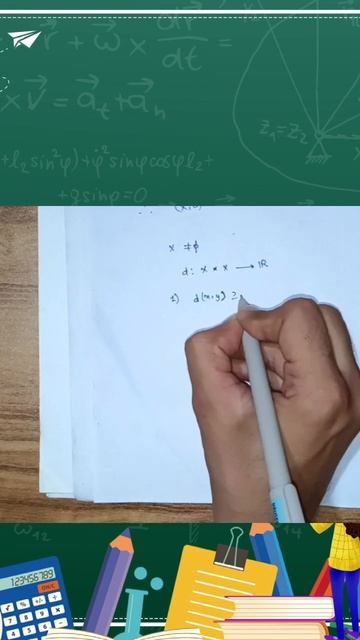 r + ω × dr/dt =
× v = a_t + a_n
z₁=z₂
+ l₂ sin²φ) + φ̇² sinφ cosφ l₂ +
+ g sin φ = 0
x ≠ ϕ
d : x * x → IR
1) d(x,y) ≥
ω₁₂
123456789